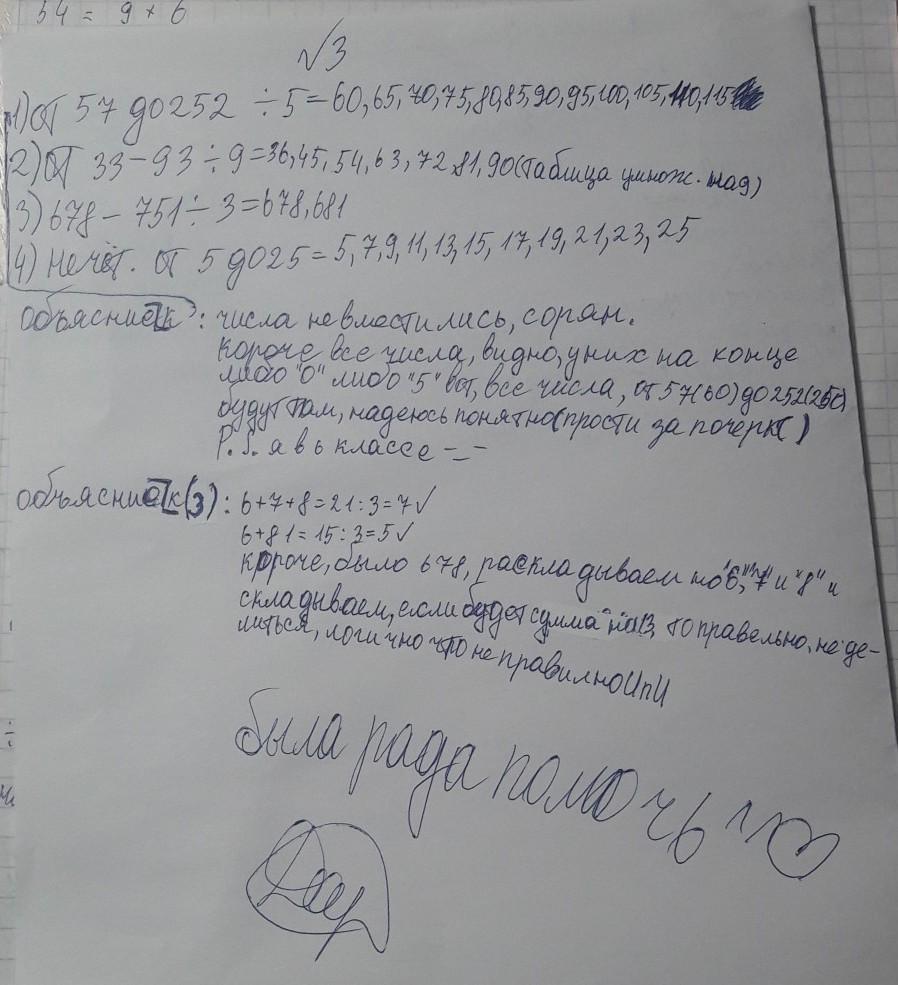 54 = 9 * 6
√3
1) от 57 до 252 ÷ 5 = 60, 65, 70, 75, 80, 85, 90, 95, 100, 105, 110, 115
2) от 33 - 93 ÷ 9 = 36, 45, 54, 63, 72, 81, 90 (таблица умнож. над)
3) 678 - 751 ÷ 3 = 678, 681
4) нечёт. от 5 до 25 = 5, 7, 9, 11, 13, 15, 17, 19, 21, 23, 25
: числа не вместились, сорян.
короче все числа, видно, у них на конце
либо "0" либо "5" вот, все числа, от 57(60) до 252(250)
будут там, надеюсь понятно (прости за почерк()
P.S. я в 6 классе -_-
(3): 6+7+8=21:3=7✓
6+81=15:3=5✓
короче, было 678, раскладываем на "6", "7" и "8" и
складываем, если будет сумма на 3, то правельно, не де-
литься, логично что неправилно
была рада помочь